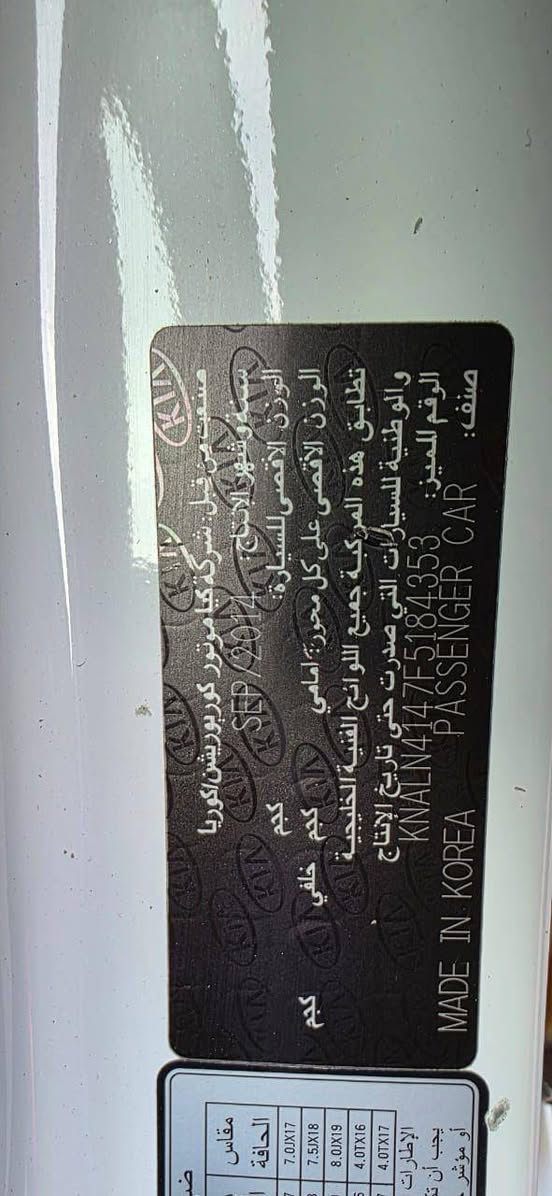 KIA
صنعت من قبل: شركة كيا موتور كوربوريشن/كوريا
سنة وشهر الانتاج: SEP / 2014
الوزن الاقصى للسيارة: كجم
الوزن الاقصى على كل محور: امامي كجم خلفي كجم
تطابق هذه المركبة جميع اللوائح الفنية الخليجية
والوطنية للسيارات التي صدرت حتى تاريخ الإنتاج
الرقم المميز: KNALN4147F5184353
صنف: PASSENGER CAR MADE IN KOREA
مقاس
الحافة
7.0JX17
7.5JX18
8.0JX19
4.0TX16
4.0TX17
الإطارات
يجب أن
أو مؤشر